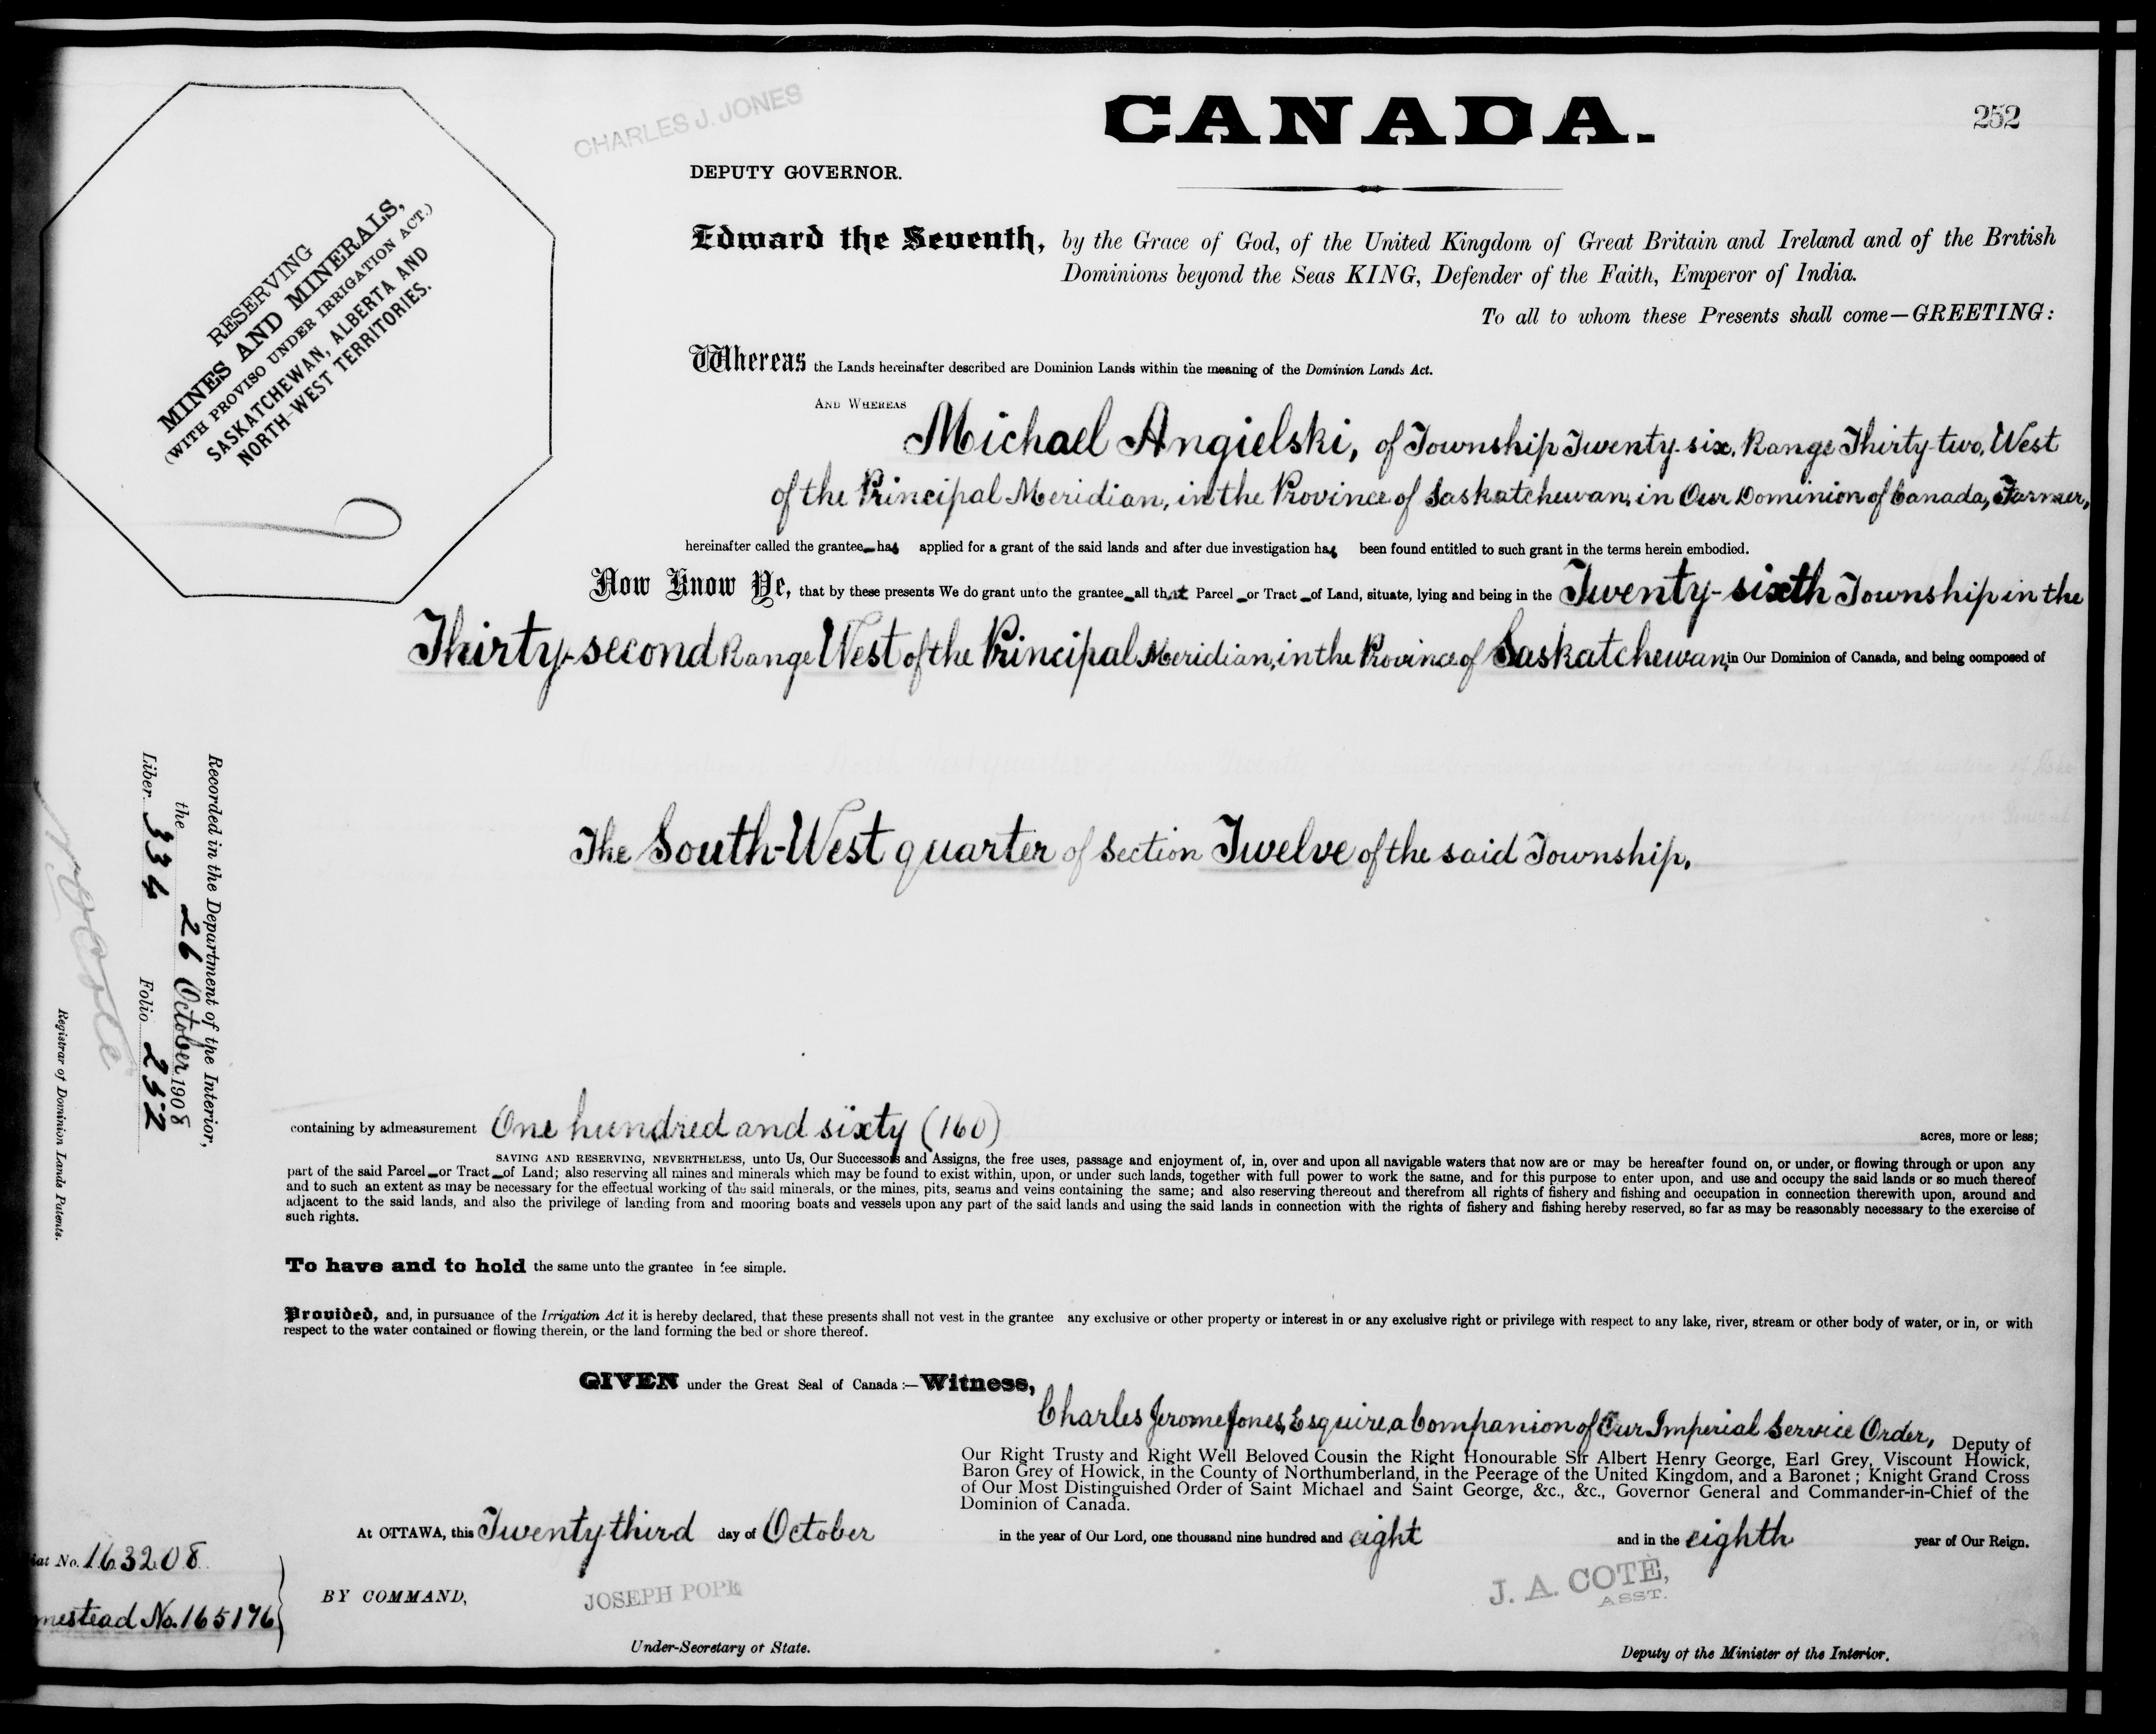 CHARLES J. JONES
CANADA.
252
DEPUTY GOVERNOR.
RESERVING
MINES AND MINERALS,
(WITH PROVISO UNDER IRRIGATION ACT.)
SASKATCHEWAN, ALBERTA AND
NORTH-WEST TERRITORIES.
Edward the Seventh, by the Grace of God, of the United Kingdom of Great Britain and Ireland and of the British
Dominions beyond the Seas KING, Defender of the Faith, Emperor of India.
To all to whom these Presents shall come—GREETING:
Whereas the Lands hereinafter described are Dominion Lands within the meaning of the Dominion Lands Act.
AND WHEREAS
Michael Angielski, of Township Twenty-six, Range Thirty-two, West
of the Principal Meridian, in the Province of Saskatchewan, in Our Dominion of Canada, Farmer,
hereinafter called the grantee has applied for a grant of the said lands and after due investigation has been found entitled to such grant in the terms herein embodied.
Now Know Ye, that by these presents We do grant unto the grantee all that Parcel or Tract of Land, situate, lying and being in the Twenty-sixth Township in the
Thirty-second Range West of the Principal Meridian, in the Province of Saskatchewan, in Our Dominion of Canada, and being composed of
The South-West quarter of Section Twelve of the said Township.
Recorded in the Department of the Interior,
the 26 October 1908
Liber 334 Folio 252
Registrar of Dominion Lands Patents.
containing by admeasurement One hundred and sixty (160) acres, more or less;
SAVING AND RESERVING, NEVERTHELESS, unto Us, Our Successors and Assigns, the free uses, passage and enjoyment of, in, over and upon all navigable waters that now are or may be hereafter found on, or under, or flowing through or upon any
part of the said Parcel or Tract of Land; also reserving all mines and minerals which may be found to exist within, upon, or under such lands, together with full power to work the same, and for this purpose to enter upon, and use and occupy the said lands or so much thereof
and to such an extent as may be necessary for the effectual working of the said minerals, or the mines, pits, seams and veins containing the same; and also reserving thereout and therefrom all rights of fishery and fishing and occupation in connection therewith upon, around and
adjacent to the said lands, and also the privilege of landing from and mooring boats and vessels upon any part of the said lands and using the said lands in connection with the rights of fishery and fishing hereby reserved, so far as may be reasonably necessary to the exercise of
such rights.
To have and to hold the same unto the grantee in fee simple.
Provided, and, in pursuance of the Irrigation Act it is hereby declared, that these presents shall not vest in the grantee any exclusive or other property or interest in or any exclusive right or privilege with respect to any lake, river, stream or other body of water, or in, or with
respect to the water contained or flowing therein, or the land forming the bed or shore thereof.
GIVEN under the Great Seal of Canada:—Witness,
Charles Jerome Jones, Esquire, a Companion of Our Imperial Service Order, Deputy of
Our Right Trusty and Right Well Beloved Cousin the Right Honourable Sir Albert Henry George, Earl Grey, Viscount Howick,
Baron Grey of Howick, in the County of Northumberland, in the Peerage of the United Kingdom, and a Baronet; Knight Grand Cross
of Our Most Distinguished Order of Saint Michael and Saint George, &c., &c., Governor General and Commander-in-Chief of the
Dominion of Canada.
At OTTAWA, this Twenty-third day of October in the year of Our Lord, one thousand nine hundred and eight and in the eighth year of Our Reign.
iat No. 163208
mestead No. 165176
BY COMMAND,
JOSEPH POPE
Under-Secretary of State.
J. A. COTÉ,
ASST.
Deputy of the Minister of the Interior.